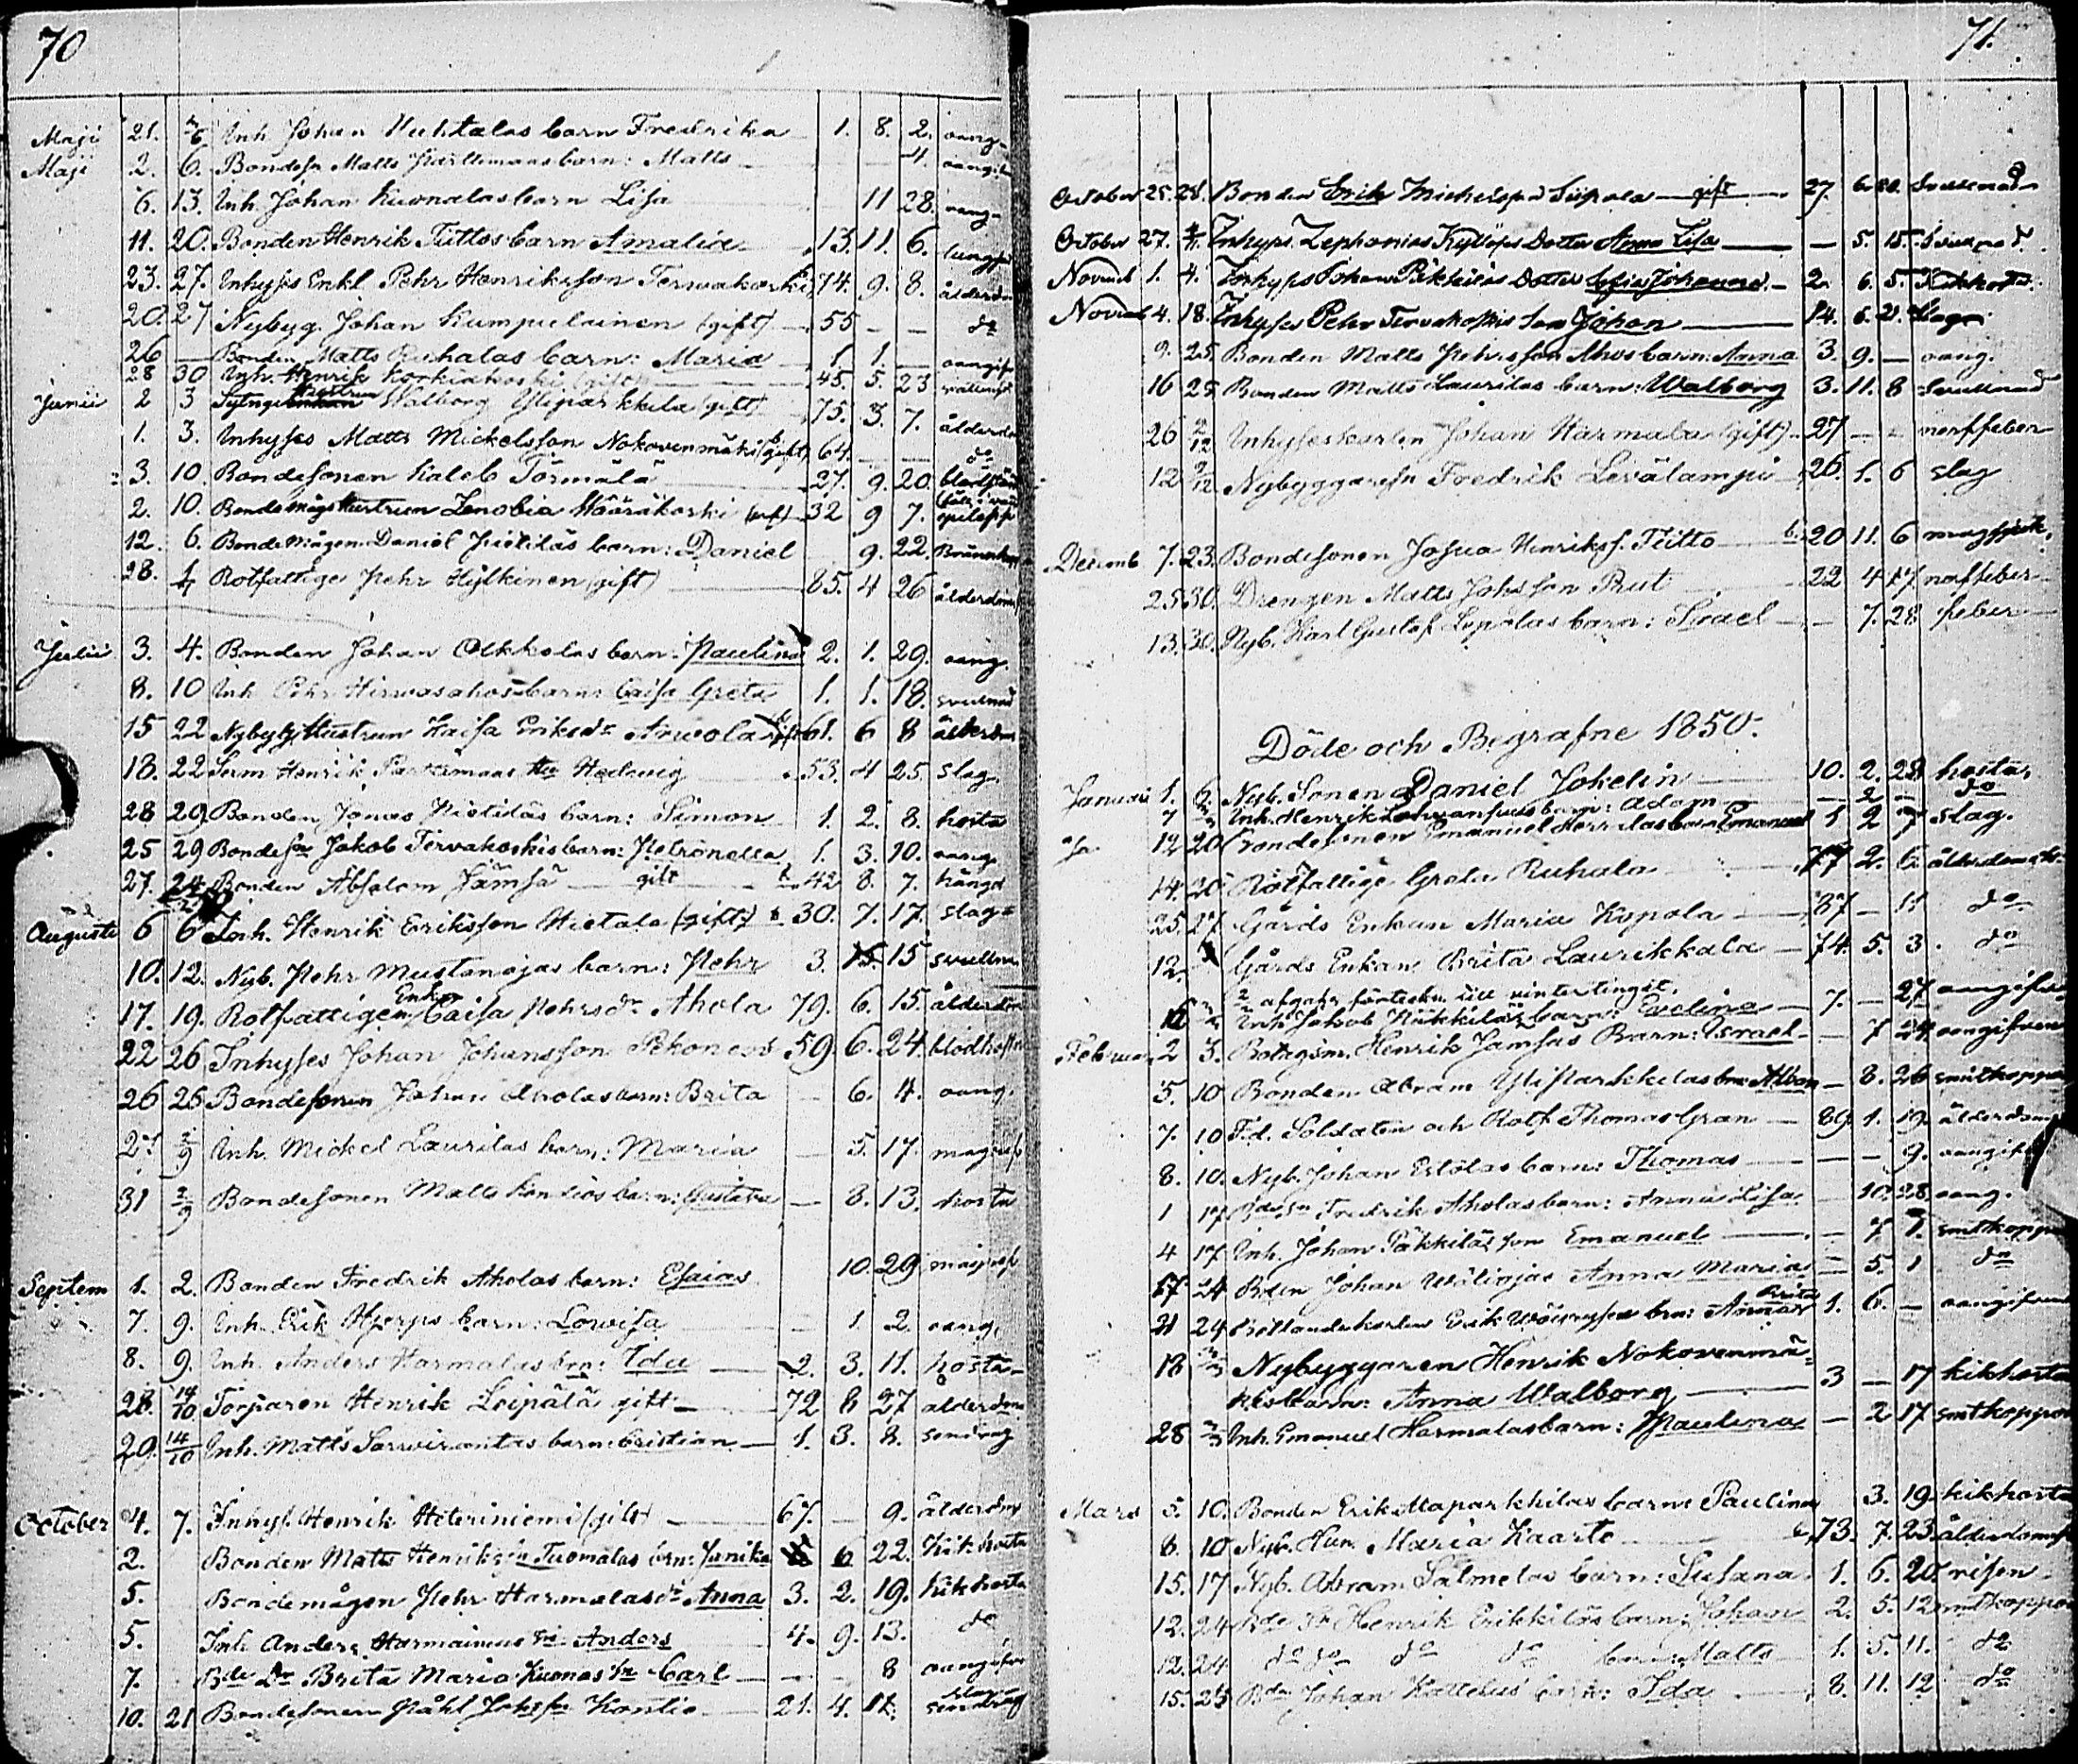 70
Maji 21. 2/6 Inh. Johan Huhtalas barn Fredrika 1. 8. 2. oang.
Maji 2. 6. Bondesn Matts barn: Matts 4. oangif
6. 13. Inh. Johan Kuonalas barn Lisa 11 28. oang.
11. 20. Bonden Henrik Tiittos barn Amalia 13. 11. 6. lungs
23. 27. Inhyses Enkl. Pehr Henriksson Terwakoski 74. 9. 8. ålderdm
20. 27 Nybyg. Johan Kumpulainen (gift) 55 — — do
26 — Bonden Matts Ruhalas barn: Maria 1. 1. — oangif
28 30 Inh. Henrik Korkiakoski (gift) 45. 5. 23
Junii 2 3 Hustrun Walborg Ylipiarkkila (gift) 75. 3. 7. ålderdo
1. 3. Inhyses Matts Mickelsson Nokovenmäki (gift) 64. — — do
3. 10. Bondesonen Kaleb Törmälä 27. 9. 20.
2. 10. Bondemågs Hustrun Zenobia Määräkoski 32 9 7. epilepp
12. 6. Bonde Mågen Daniel Pietiläs barn: Daniel 9. 22.
28. 1/7 Rotfattige Pehr Hylkinen (gift) 85. 4 26 ålderdom
Julii 3. 4. Bonden Johan Olkkolas barn: Paulina 2. 1. 29. oang.
8. 10 Inh. Pehr Hirwasahos barn: Caisa Greta 1. 1. 18. svullnad
15 22 Nybygg Hustrun Kaisa Eriksdr Anuola gift 61. 6 8 ålderdm
18. 22 Henrik Hu Hedewig 53. 4 25. slag
28 29 Bonden Jonas Pietiläs barn: Simon 1. 2. 8. hosta
25 29 Bondesn Jakob Tervakoskis barn: Petronella 1. 3. 10. oang.
27. 24 Bonden Absalom Jämsä gift 42 8. 7. hängd
Augusti 6 6 Inh. Henrik Eriksson Hietala (gift) 30. 7. 17. slag
10. 12. Nyb. Pehr Mustanojas barn: Pehr 3. 15 svulln
17. 19. Rotfattige Enk. Caisa Pehrsdr Ahola 79. 6. 15. ålderdom
22 26 Inhyses Johan Johansson Pekonens 59. 6. 24. blodhost
26 26 Bondesonen Johan Aholas barn: Brita — 6. 4. oang.
27 2/9 Inh. Mickel Laurilas barn: Maria — 5. 17. magref
31 2/9 Bondesonen Matts Kontios barn: Gustava — 8. 13. hosta
Septem 1. 2. Bonden Fredrik Aholas barn: Esaias 10. 29 magref
7. 9. Inh. Erik Hjerps barn: Lowisa — 1. 2. oang.
8. 9. Inh. Anders Harmalas brn: Ida 2. 3. 11. hosta
28. 14/10 Torparen Henrik Leipälä gift 72 8 27 ålderdom
29. 14/10 Inh. Matts Sarwirantas barn: Cristian 1. 3. 8. sendrag
October 4. 7. Inhys. Henrik Heteriniemi (gift) 67. — 9. ålderdms
2. Bonden Matts Henrikssn Tuomalas brn: Janika 6 22. Kikhosta
5. Bondemågen Pehr Harmalas dr Anna 3. 2. 19. Kikhosta
5. Inh. Anders Harmainens sn Anders 4. 9. 13. do
7. Bde dr Brita Maria Kuonas sn Carl — — 8 oangifven
10. 21 Bondesonen Påhl Johssn Kontio 21. 4. 12. sendrag
71.
October 25. 28. Bonden Erik Michelsson Siipola gift 27. 6. 20. Svullnad
October 27. 4/11 Inhyses Zephanias Kyllöses Dotter Anna Lisa — 5. 15. Svullnad
Novemb 1. 4. Inhyses Johan Päkkiläs Dotter Sofia Johanna 2. 6. 5. Kikhosta
Novemb 4. 18. Inhyses Pehr Tervakoskis Son Johan 14. 6. 21. Slag
9. 25. Bonden Matts Pehrsson Ahos barn: Anna 3. 9. — oang.
16 25 Bonden Matts Laurilas barn: Walborg 3. 11. 8 Svullnad
26 2/12 Inhyseskarlen Johan Harmala (gift) 27 — — nerffeber
12 2/12 Nybyggaresn Fredrik Levälampi 26. 1. 6 slag
Decemb 7. 23. Bondesonen Josua Henrikss. Tiitto 20 11. 6 magsjuk.
25 30. Drengen Matts Johsson Rut 22 4 17 nerffeber
13. 30. Nyb. Karl Gustaf Lepolas barn: Israel — 7. 28 feber
Döde och Begrafne 1850.
Januari 1. 6. Nyb. Sonen Daniel Jokelin 10. 2. 28 hosta
7 Inh. Henrik barn: Adam — 2 — do
12 20 Bondesonen Emanuel barn Emanuel 1 2 7 slag.
14. 20 Rotfattige Greta Ruhala 77 2. 6. ålderdom
25. 27 Gårds Enkan Maria Kopola 87 — 11 do
12. Gårds Enkan Brita Laurikkala 74. 5. 3. do
afgafs förteckn. till vintertinget.
Inh. Jakob Niikkiläs barn: Evelina 7. — 27 oangifven
Februari 2 3. Henrik Jämsäs Barn: Israel — 7 24 oangifven
5. 10 Bonden Abram Ylipiarkkilas brn: Alban — 8. 26 smitkoppor
7. 10 F.d. Soldaten och Rotf. Thomas Gran 89. 1. 19. ålderdom
8. 10. Nyb. Johan Erkolas barn: Thomas — — 9. oangif
1 17 Bdesn Fredrik Aholas barn: Anna Lisa 10. 28. oang.
4 17. Inh. Johan Päkkiläs son Emanuel — 7 7. smitkoppor
17 24 Bden Johan Wäliojas Anna Maria — 5. 1 do
21 24 Erik brn: Anna Brita 1. 6. — oangifven
18 Nybyggaren Henrik Nokovenmä-
kis barn: Anna Walborg 3 — 17 kikhosta
28 Inh. Emanuel Harmalas barn: Paulina — 2 17 smitkoppor
Mars 5. 10. Bonden Erik Alapiarkkilas barn: Paulina 3. 19. kikhosta
8. 10 Nyb. Hun. Maria Kaarto 73. 7. 23. ålderdoms
15. 17 Nyb. Abram Salmelas barn: Susana 1. 6. 20. risen
12. 24 Bde Sn Henrik Erikkiläs barn: Johan 2. 5. 12 smitkoppor
12. 24 do do do do barn: Matts 1. 5. 11. do
15. 25 Bdn Johan Kattelus barn: Ida 8. 11. 12 do